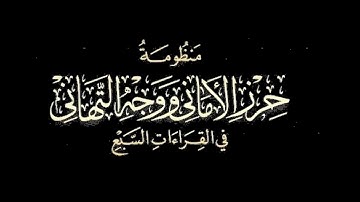 مَنظُومَةُ
حِرْزُ الأَمَانِي وَوَجْهُ التَّهَانِي
فِي القِرَاءَاتِ السَّبْعِ